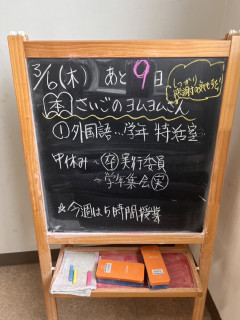 3/6(木) あと9日
しっかり
感謝の気持ちを!
㊍ さいごのヨムヨムさん
① 外国語…学年 特活室
中休み ~ 卒 実行委員
~ 学年集会
☆今週は5時間授業